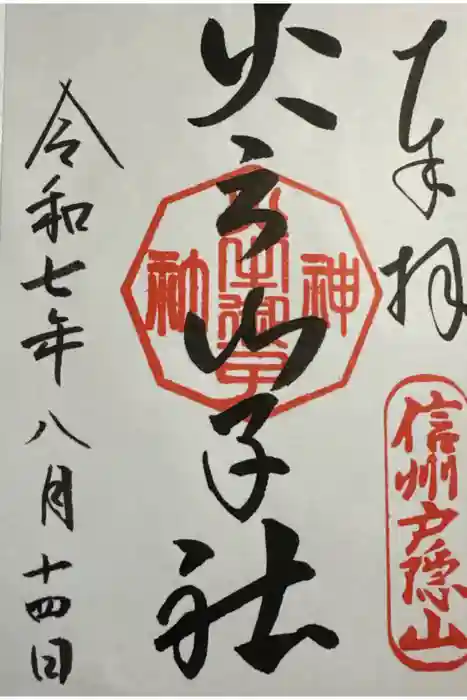 奉拝
信州戸隠山
火之御子社
神社
令和七年八月十四日